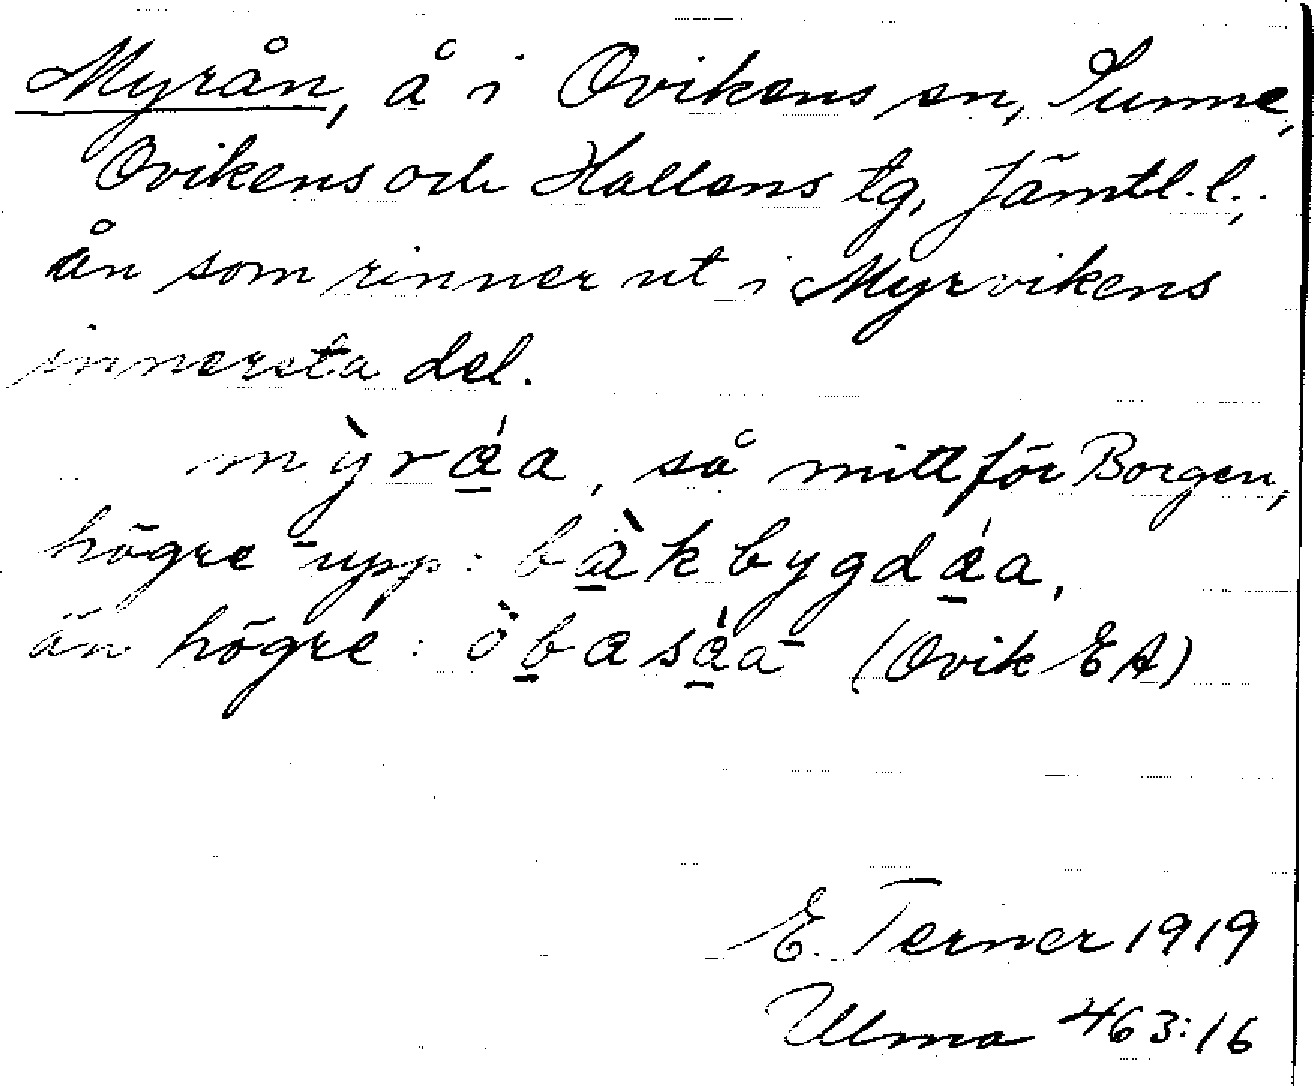 Myrån, å i Ovikens sn, Sunne,
Ovikens och Hallens tg, Jämtl. l.;
ån som rinner ut i Myrvikens
innersta del.
mỳrá̱a, så mitt för Borgen,
högre upp: bà̱kbygdá̱a,
än högre: òḇasá̱a (Ovik EA)
E. Terner 1919
Ulma 463:16